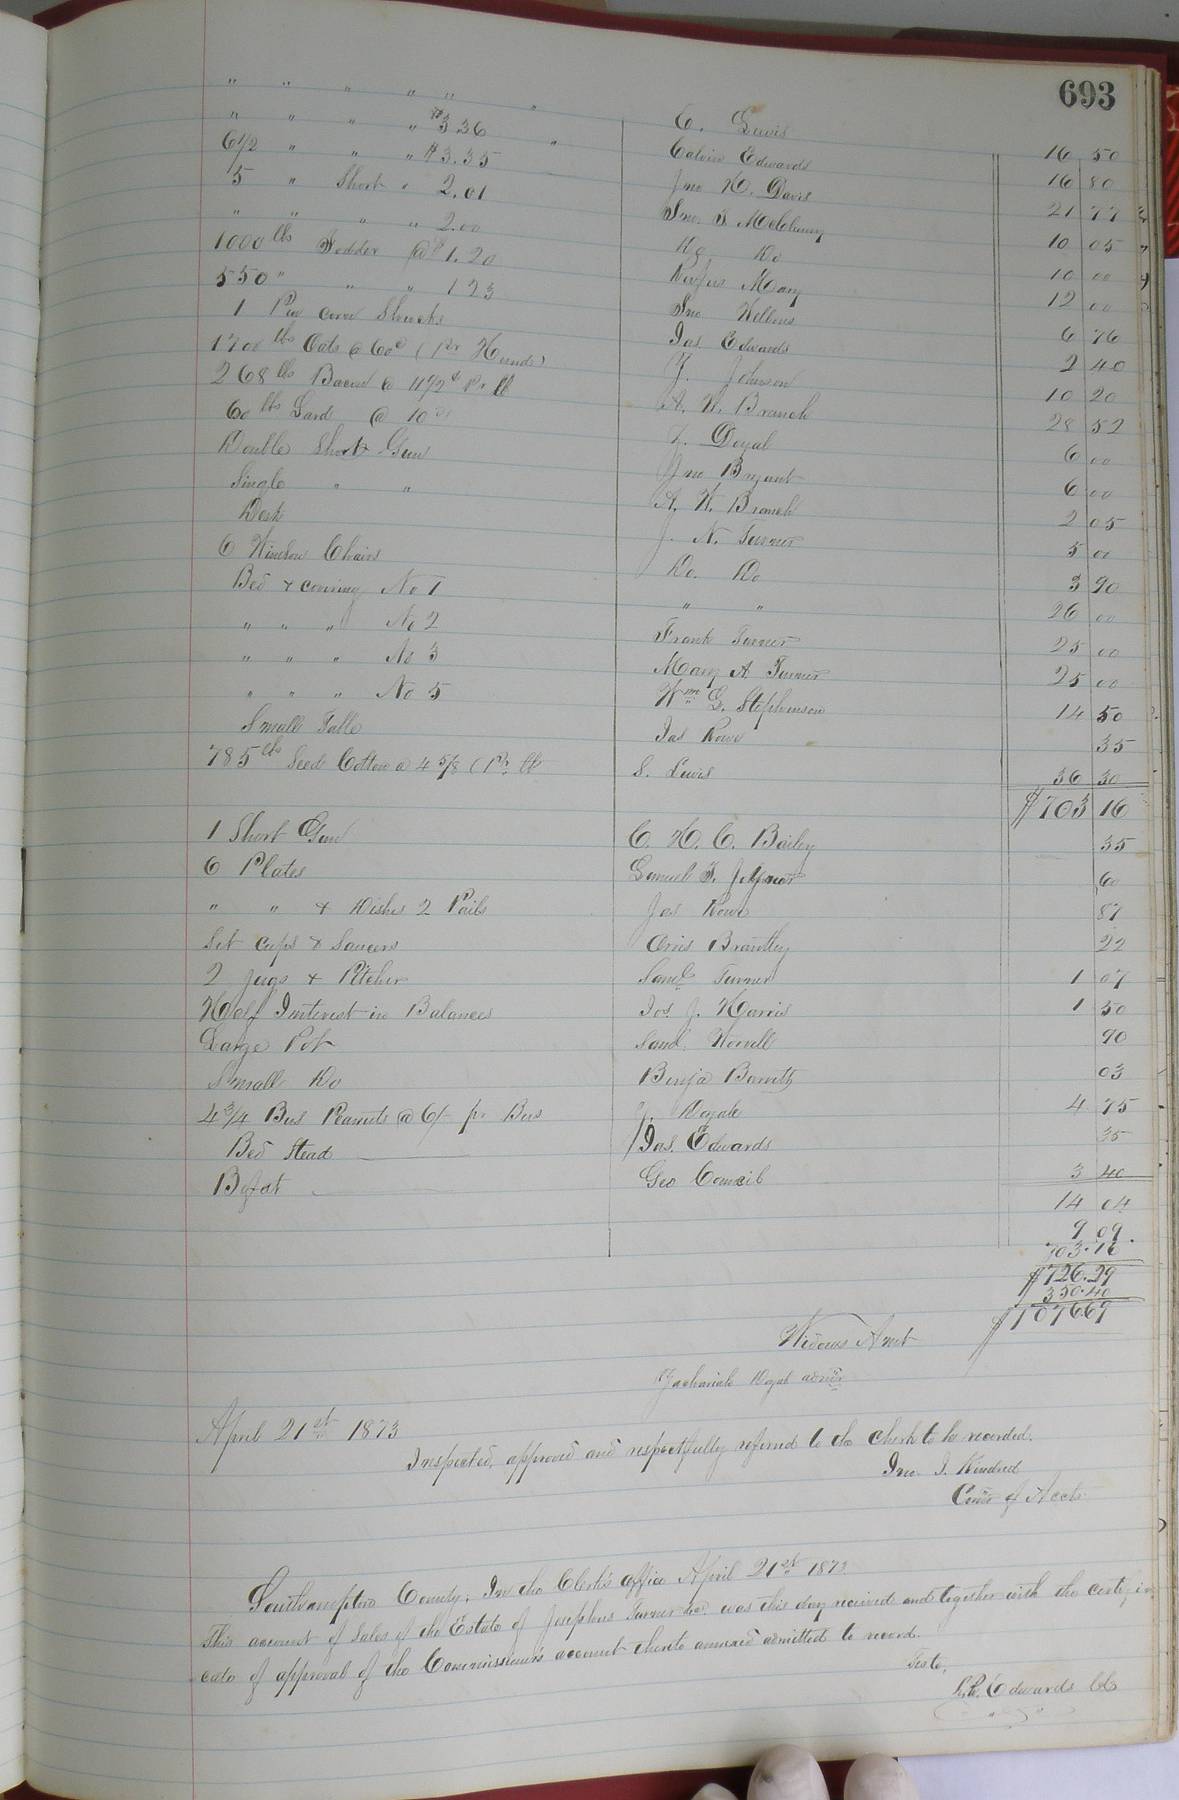 693
" " " " " "
" " " " $3.36 " E. Lewis 16 50
6 1/2 " " " $3.35 Calvin Edwards 16 80
5 " Short " 2.01 Jno H. Davis 21 77
" " " " 2.00 Jno. T. 10 05
1000 lbs Fodder @ $1.20 Do 10 00
550 " " " 123 Mary 12 00
1 corn Shucks Jno 6 76
1700 lbs Oats @ 60c (Pr Hund) Jas Edwards 2 40
268 lbs Bacon @ 11 1/2 c Pr lb J. Johnson 10 20
60 lbs Lard @ 10 A. W. Branch 28 52
Double Short Gun Z. Doyal 6 00
Single " " Jno Bryant 6 00
Desk A. W. Branch 2 05
6 Chairs J. N. Turner 5 00
Bed & covering No 1 Do. Do 3 90
" " " No 2 " " 26 00
" " " No 3 Frank Turner 25 00
" " " No 5 Mary A. Turner 25 00
Small Table Wm G. Stephenson 14 50
785 lbs Seed Cotton @ 4 5/8 (Pr lb Jas Rowe 35
S. Lewis 36 30
$703 16
1 Short Gun C. H. C. Bailey 35
6 Plates Lemuel T. Joyner 60
" " & Dishes 2 Pails Jas Rowe 87
Set cups & Saucers Brantley 22
2 Jugs & Pitcher Saml Turner 1 07
Half Interest in Balances Jos. J. Harris 1 50
Large Pot Saml. Worrell 90
Small Do Benja Barrett 03
4 3/4 Bus Peanuts @ 6/ pr Bus J. Doyale 4 75
Bed Stead Jas. Edwards 35
Bofat Geo Council 3 40
14 04
9 09.
703.16
$726.29
350.40
$1076.69
Widows Amt
Zachariah Doyal admr
April 21st 1873
Inspected, approved and respectfully referred to the Clerk to be recorded.
Jno. J. Kindred
Comr of Accts.
Southampton County; In the Clerk's office April 21st 1873
This account of Sales of the Estate of Josephus Turner decd. was this day received and together with the certifi
cate of approval of the Commissioner's account thereto annexed admitted to record.
Teste,
L. R. Edwards Clk